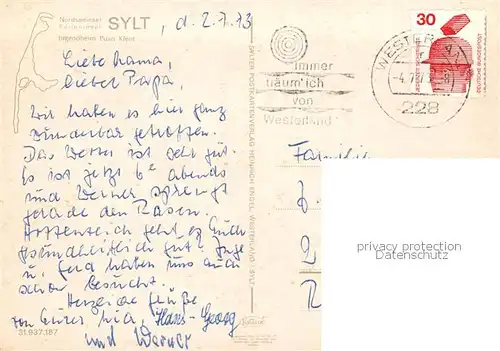 Nordseeinsel SYLT, d. 2.7.73
Ferieninsel
Jugendheim Puan Klent
Liebe Mama,
lieber Papa,
wir haben es hier ganz
wunderbar getroffen.
Das Wetter ist sehr gut.
Es ist jetzt 6º abends
und Werner sprengt
gerade den Rasen.
Hoffentlich geht es Euch
gesundheitlich gut. Inge
u. Gerd haben uns auch
schon besucht.
Herzliche Grüße
von Eurer Hans-Georg
und Werner
21.937.187
DRITTER POSTKARTENVERLAG HEINRICH ENGEL, WESTERLAND / SYLT
immer
träum' ich
von
Westerland
WESTERLAND
228
30
DEUTSCHE BUNDESPOST
Familie
privacy protection
Datenschutz